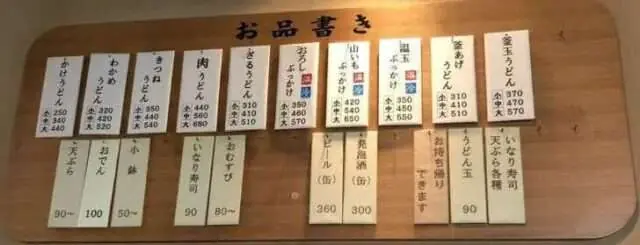 お品書き
釜玉うどん
小 370
中 470
大 570
釜あげ
うどん
小 310
中 410
大 510
温玉
ぶっかけ
温
冷
小 350
中 450
大 550
山いも
ぶっかけ
温
冷
小 420
中 540
大 650
おろし
ぶっかけ
温
冷
小 350
中 460
大 570
ざるうどん
小 310
中 410
大 510
肉うどん
小 440
中 560
大 680
きつね
うどん
小 350
中 440
大 540
わかめ
うどん
小 320
中 420
大 520
かけうどん
小 250
中
大 440
いなり寿司
天ぷら各種
うどん玉
90
お持ち帰り
できます
発泡酒(缶)
300
ビール(缶)
360
おむすび
80～
いなり寿司
90
小鉢
50～
おでん
100
天ぷら
90～